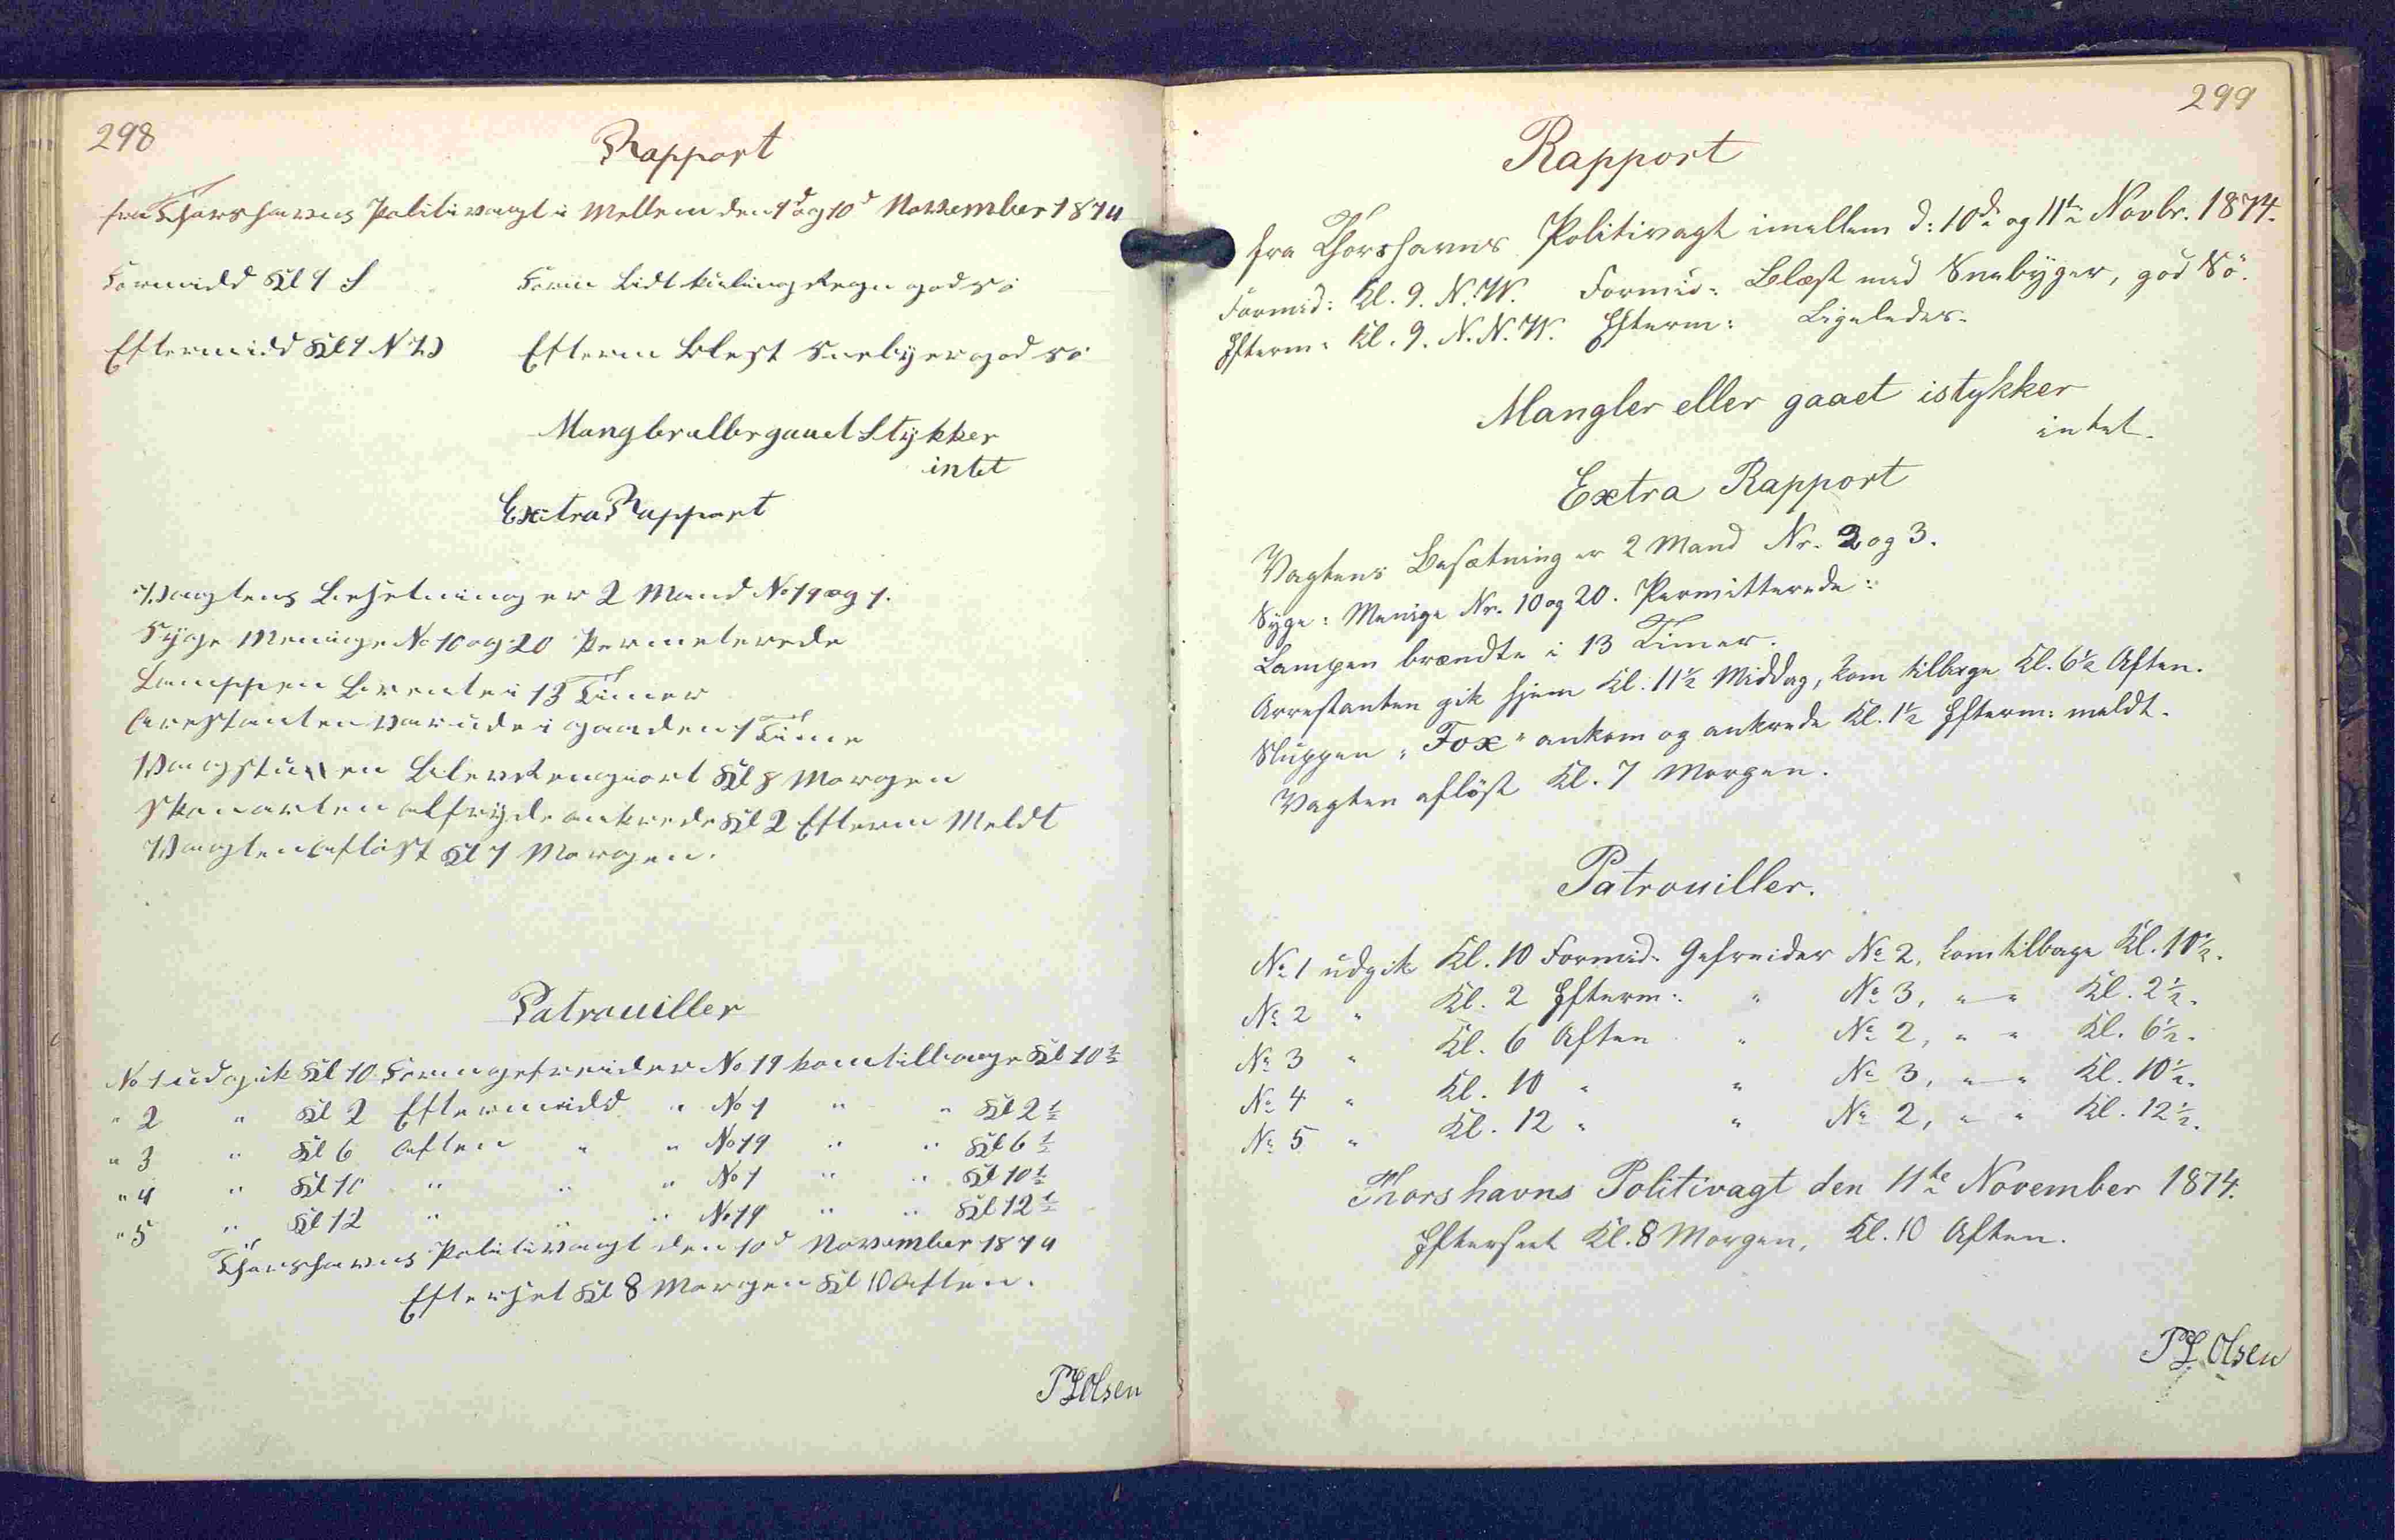 298
Rapport
fra Thorshavns Politivagt i Mellem den 9d og 10d November 1874
Formidd Kl 9 S Form Lidt kuling Regn god sö
Eftermidd Kl 9 N W Efterm Blest Snebyer god sö
Mangler eller gaaet Stykker
intet
Extra Rapport
Vagtens Besetning er 2 Mand No 19 og 1.
Syge Meninge No 10 og 20 Permeterede
Lamppen Brente i 13 Timer
Arestanten var ude i gaaden 1 Time
Vagstuen Blev Rengiort Kl 8 Morgen
Skonarten alfryde ankrede Kl 2 Efterm Meldt
Vagten Aflöst Kl 7 Morgen.
Patrouiller
No 1 udgik Kl 10 Form gefreider No 19 kom tilbage Kl 10 ½
" 2 " Kl 2 Eftermidd " No 1 " " Kl 2 ½
" 3 " Kl 6 Aften " " No 19 " " Kl 6 ½
" 4 " Kl 10 " " " No 1 " " Kl 10 ½
" 5 " Kl 12 " " " No 19 " " Kl 12 ½
Thorshavns Politivagt den 10d November 1874
Efterset Kl 8 Morgen Kl 10 Aften.
P L Olsen
299
Rapport
fra Thorshavns Politivagt imellem d: 10de og 11te Novbr. 1874.
Formid: Kl. 9. N.W. Formid: Blæst med Snebyger, god Sö.
Efterm: Kl. 9. N.N.W. Efterm: Ligeledes.
Mangler eller gaaet istykker
intet.
Extra Rapport
Vagtens Besætning er 2 Mand Nr. 2 og 3.
Syge: Menige Nr. 10 og 20. Permitterede:
Lampen brændte i 13 Timer.
Arrestanten gik hjem Kl. 11½ Middag, kom tilbage Kl. 6½ Aften.
Sluppen „Fox" ankom og ankrede Kl. 1½ Efterm: meldt.
Vagten aflöst Kl. 7 Morgen.
Patrouiller.
No 1 udgik Kl. 10 Formid. Gefreider No 2, kom tilbage Kl. 10½.
No 2 " Kl. 2 Efterm: " No 3, " " Kl. 2½.
No 3 " Kl. 6 Aften " No 2, " " Kl. 6½.
No 4 " Kl. 10 " " No 3, " " Kl. 10½.
No 5 " Kl. 12 " " No 2, " " Kl. 12½.
Thorshavns Politivagt den 11te November 1874.
Efterseet Kl. 8 Morgen, Kl. 10 Aften.
P L Olsen